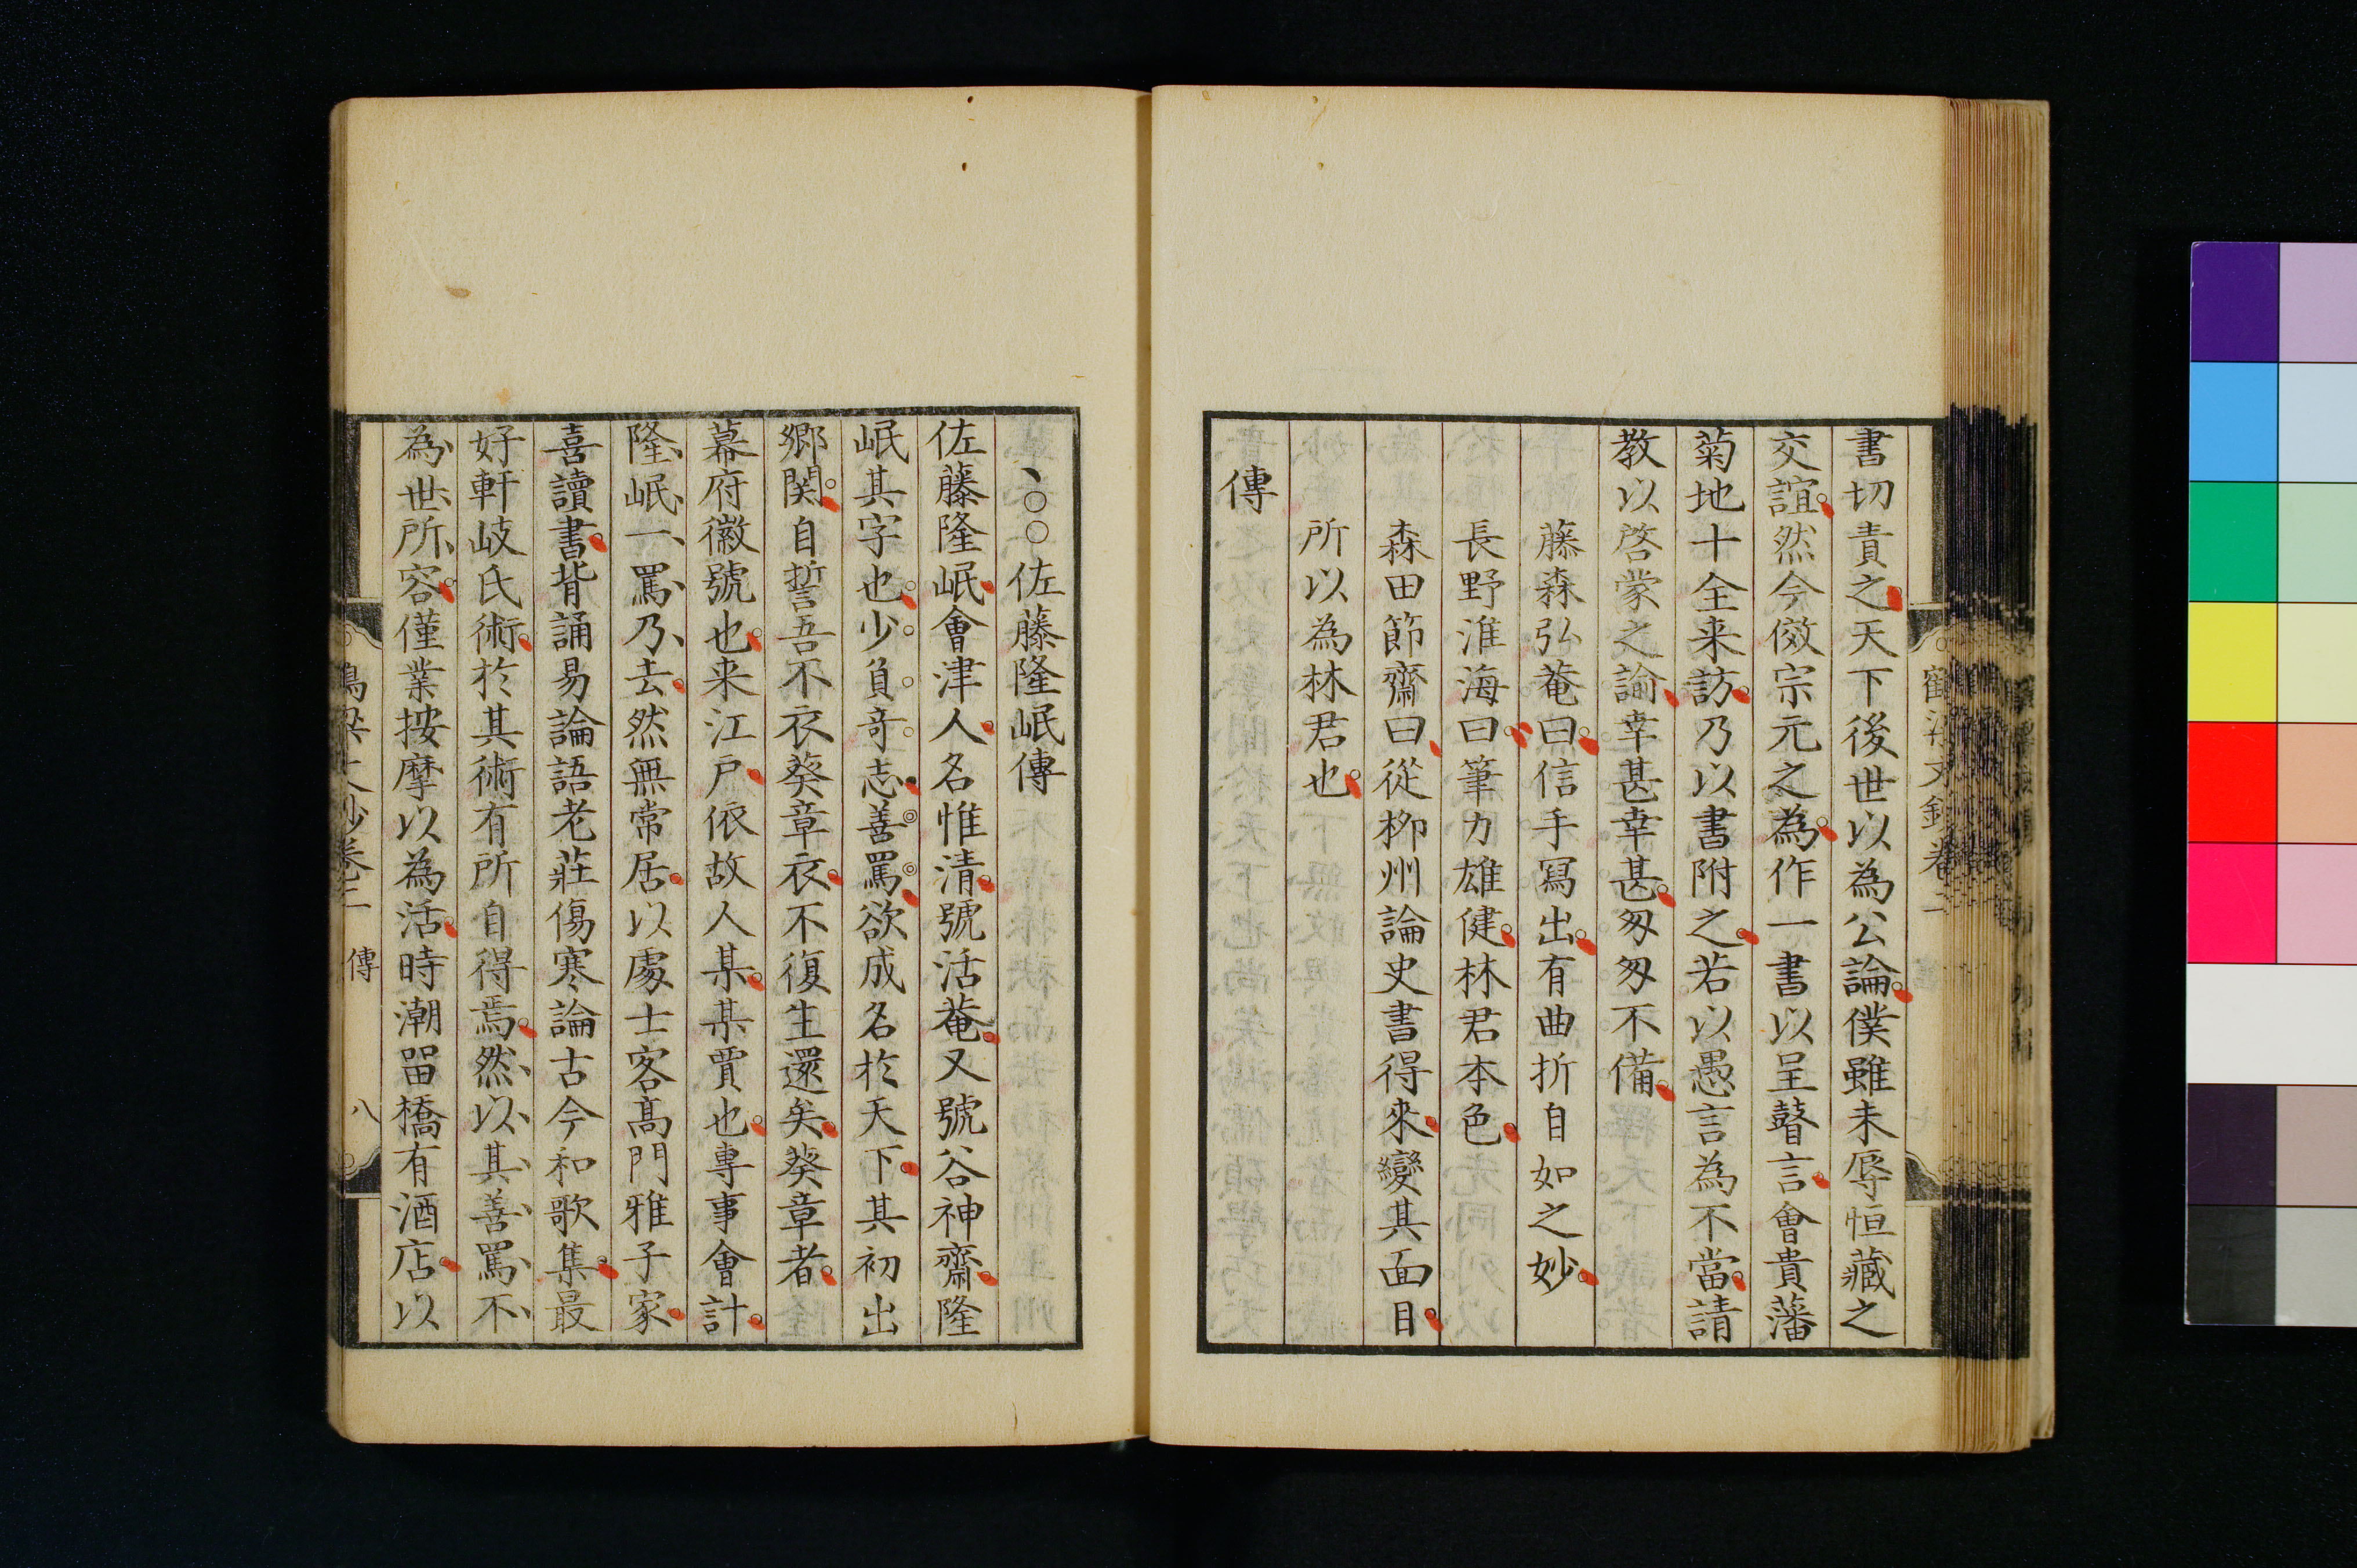 書切責之天下後世以為公論僕雖未辱恒藏之
交誼然今傚宗元之為作一書以呈瞽言會貴藩
菊地十全来訪乃以書附之若以愚言為不當請
教以啓蒙之諭幸甚幸甚匆匆不備
藤森弘菴曰信手寫出有曲折自如之妙
長野淮海曰筆力雄健林君本色
森田節齋曰從柳州論史書得來變其面目
所以為林君也
傳
佐藤隆岷傳
佐藤隆岷會津人名惟清號活菴又號谷神齋隆
岷其字也少負奇志善罵欲成名於天下其初出
鄉関自誓吾不衣葵章衣不復生還矣葵章者
幕府徽號也来江戸依故人某某賈也專事會計
隆岷一罵乃去然無常居以處士客髙門雅子家
喜讀書背誦易論語老莊傷寒論古今和歌集最
好軒岐氏術於其術有所自得焉然以其善罵不
為世所容僅業按摩以為活時潮畱橋有酒店以
傳
八